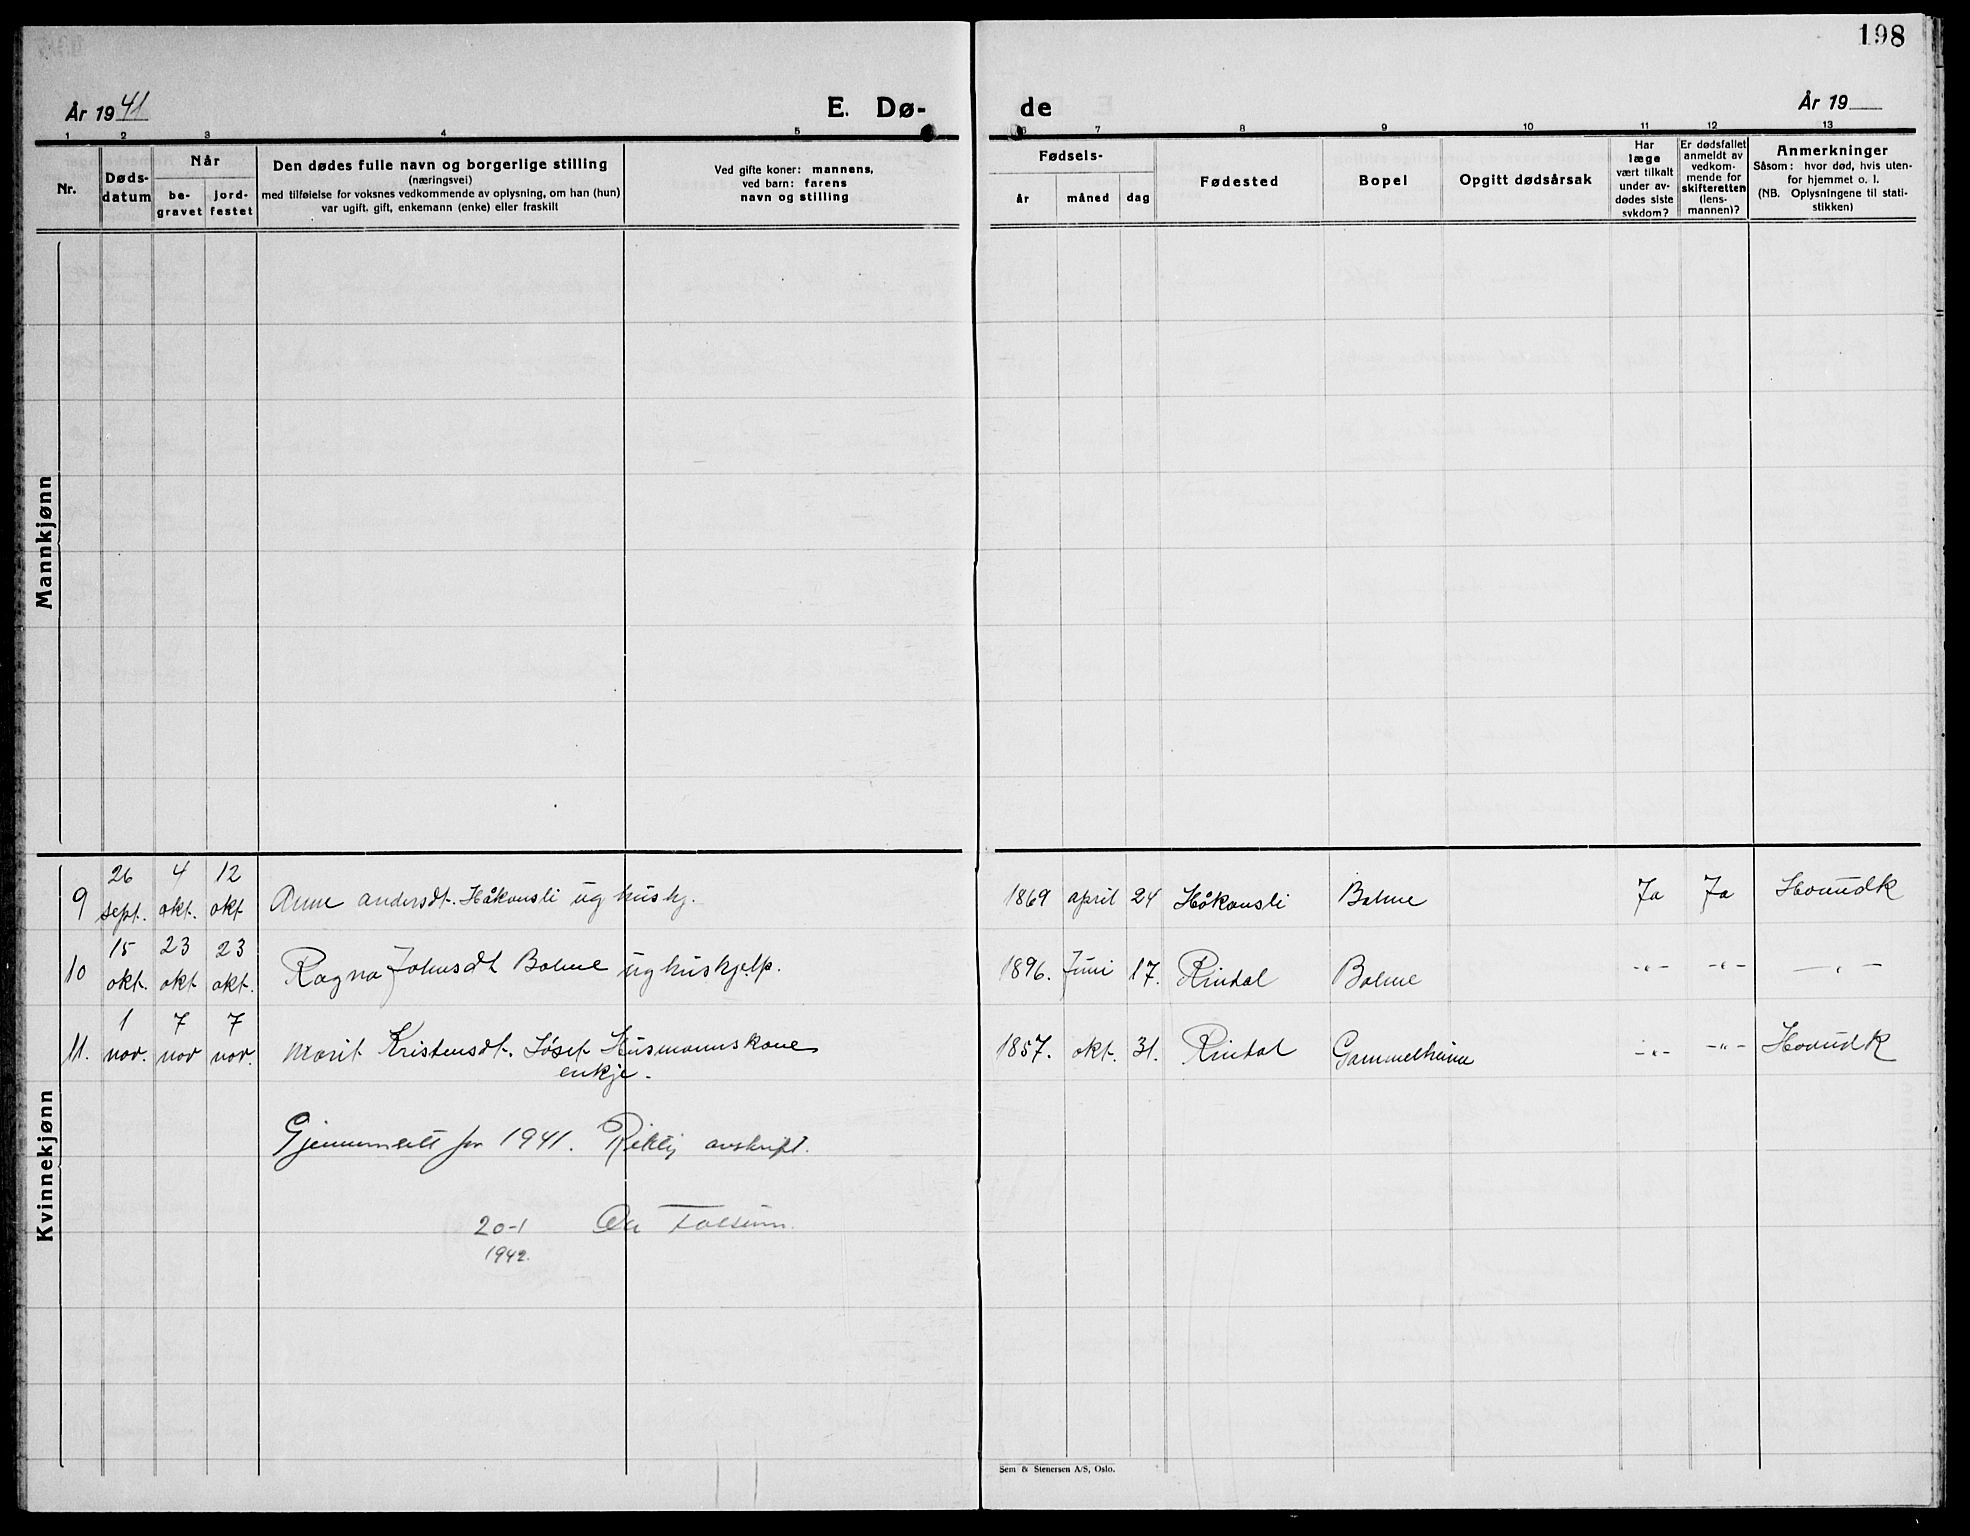 198
År 1941 E. Dø- de År 19
1 2 3 4 5 6 7 8 9 10 11 12 13
Nr.
Døds-
datum
Når
be-
gravet
jord-
festet
Den dødes fulle navn og borgerlige stilling
(næringsvei)
med tilføielse for voksnes vedkommende av oplysning, om han (hun)
var ugift, gift, enkemann (enke) eller fraskilt
Ved gifte koner: mannens,
ved barn: farens
navn og stilling
Fødsels-
år måned dag
Fødested
Bopel
Opgitt dødsårsak
Har
læge
vært tilkalt
under av-
dødes siste
sykdom?
Er dødsfallet
anmeldt av
vedkom-
mende for
skifteretten
(lens-
mannen)?
Anmerkninger
Såsom: hvor død, hvis uten-
for hjemmet o. l.
(NB. Oplysningene til stati-
stikken)
Mannkjønn
Kvinnekjønn
9 26 sept. 4 okt. 12 okt Anne andersdt. Håkonsli ug hushj. 1869 april 24 Håkonsli Bolme Ja Ja
10 15 okt. 23 okt 23 okt. Ragna Johnsdt Bolme ug huskjelp. 1896. Juni 17. Rindal Bolme -„- -„- -„-
11. 1 nov. 7 nov 7 nov. Marit Kristensdt. Løset Husmannskone 1857. okt. 31. Rindal -„- -„-
enkje.
Gjennumsett for 1941. Riktig avskrift.
20-1
1942.
Sem & Stenersen A/S, Oslo.